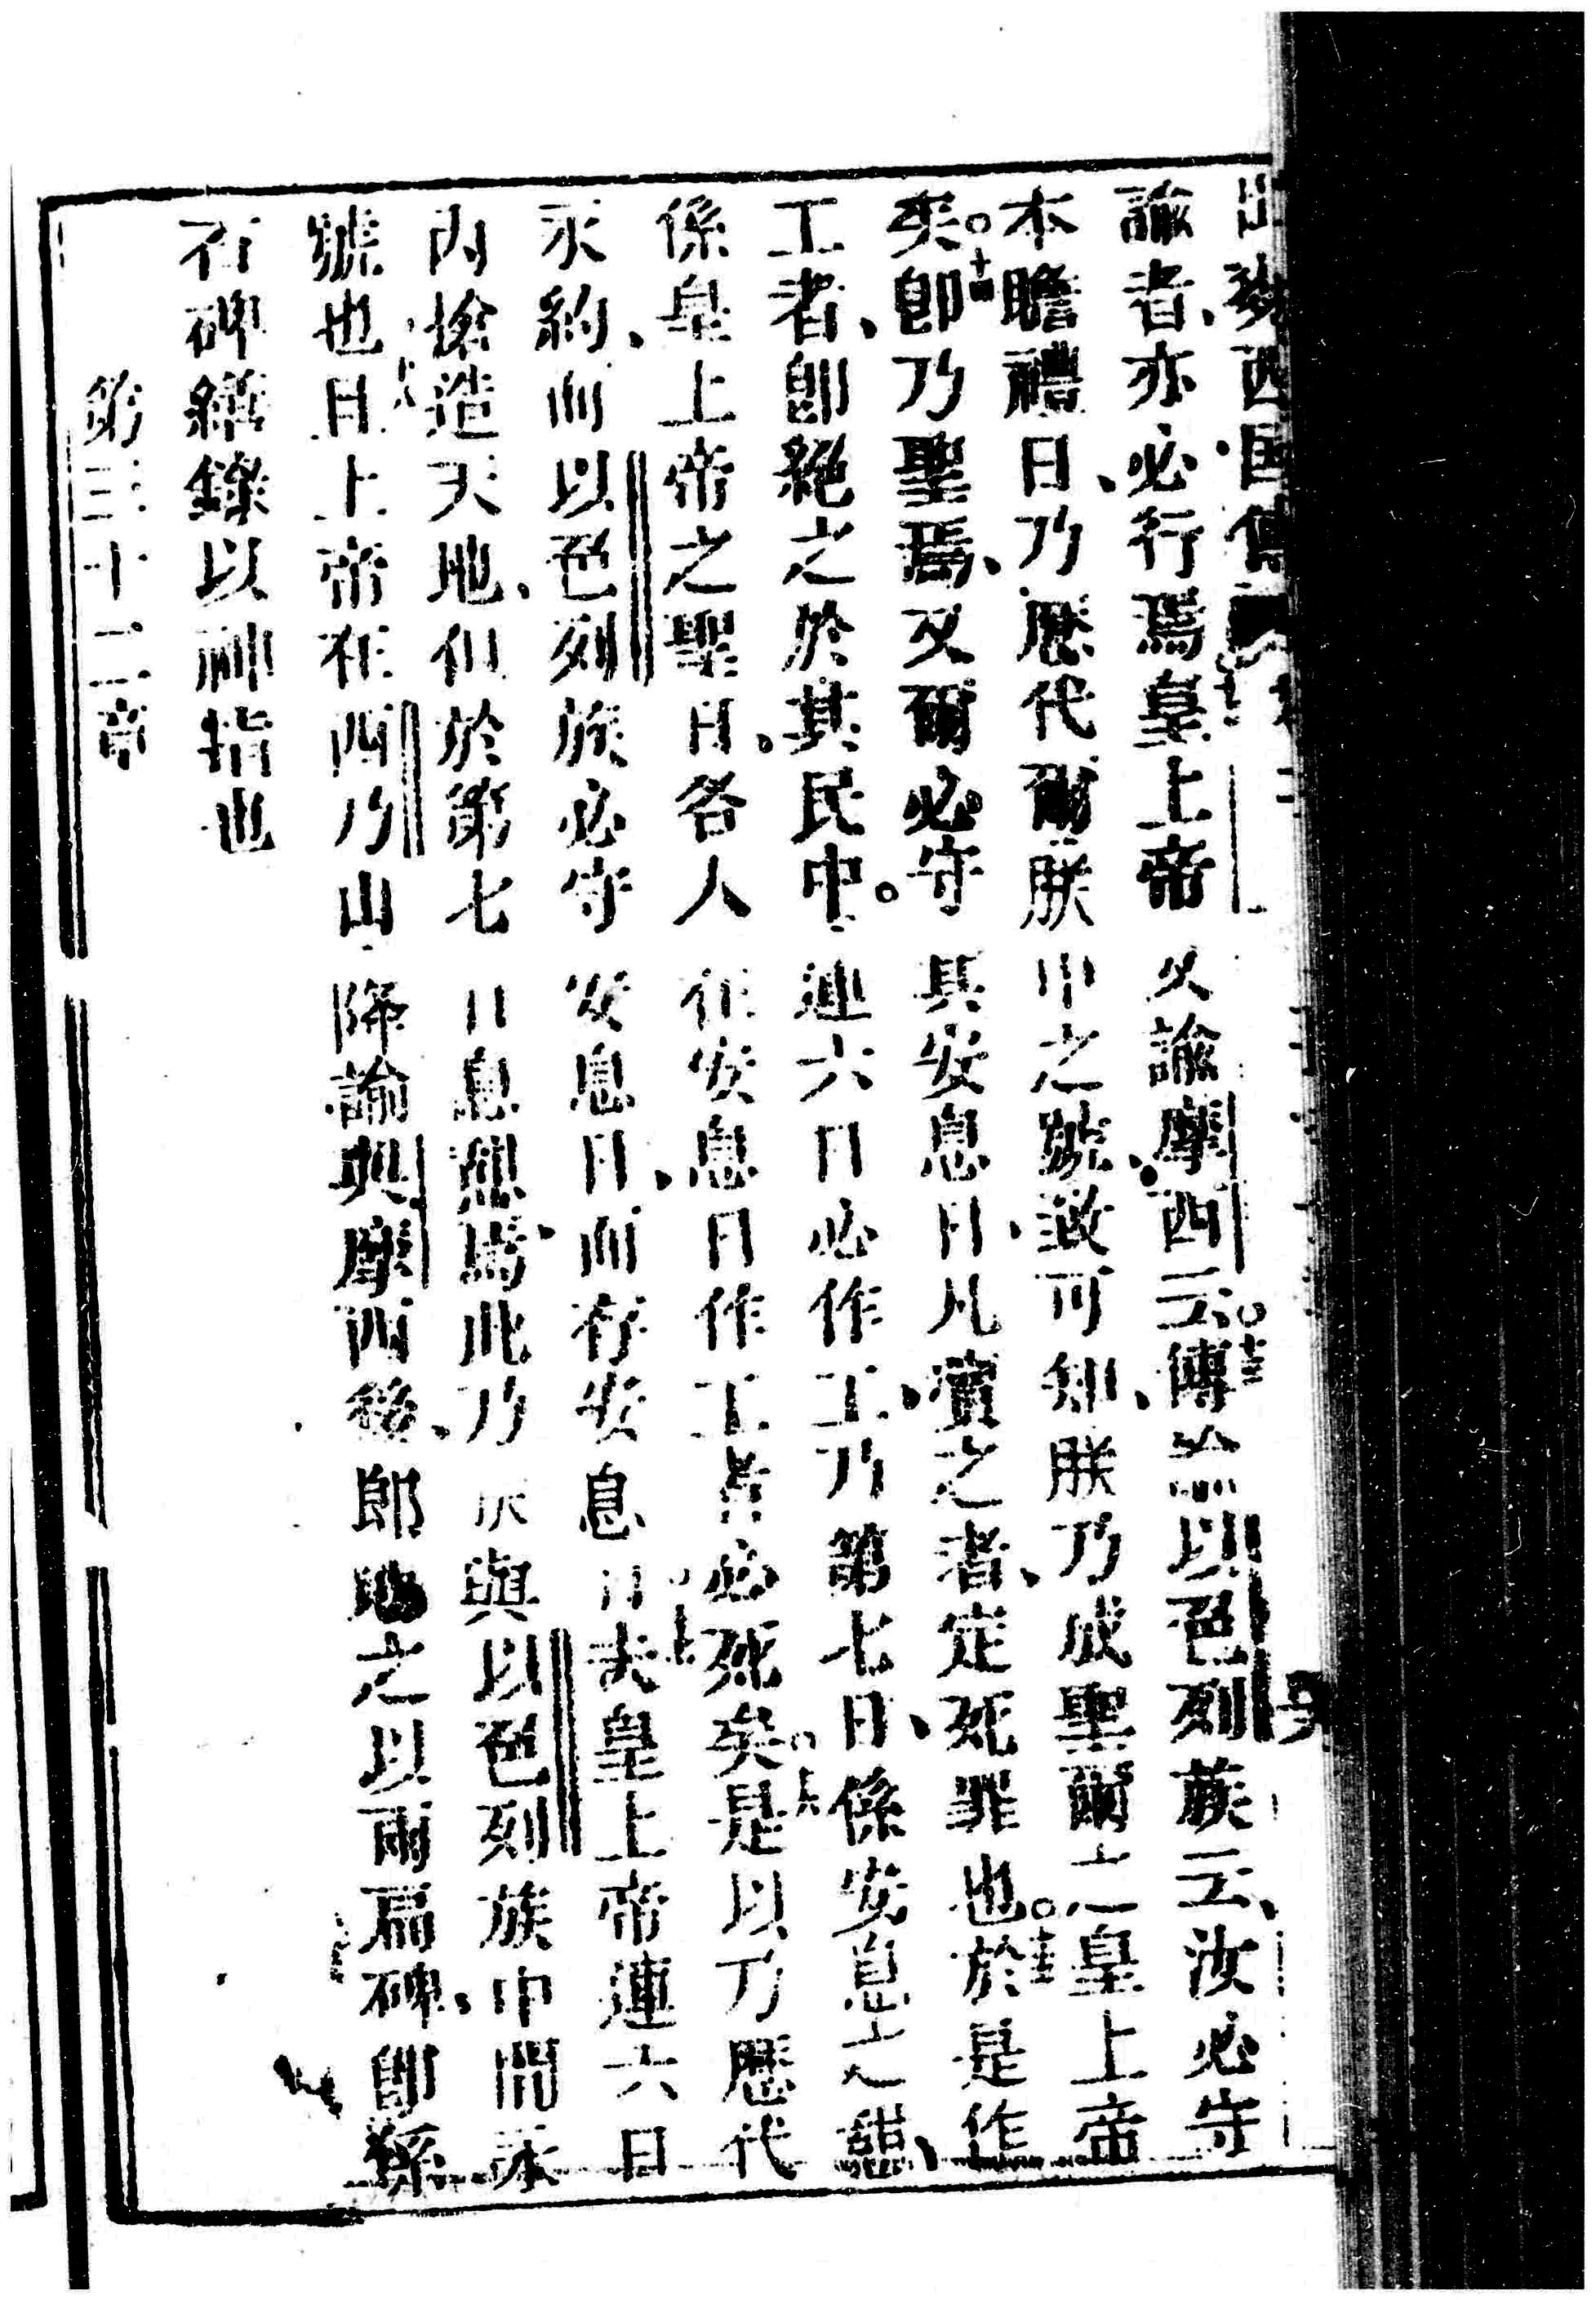 諭者、亦必行焉皇上帝又諭摩西云、○十三傳諭以色列族云、汝必守
本瞻禮日、乃歷代爾朕中之號、致可知、朕乃成聖爾之皇上帝
矣。○十四即乃聖焉、又爾必守其安息日、凡瀆之者、定死罪也。○十五於是作
工者、即絕之於其民中。連六日必作工、乃第七日、係安息之
係皇上帝之聖日、各人在安息日作工者必死矣。○十六是以乃歷代
永約、而以色列族必守安息日、而存安息日○十七夫皇上帝連六日
內搶造天地、但於第七日息憩焉、此乃朕與以色列族中間永
號也○十八日上帝在西乃山降諭與摩西後、即賜之以兩扁碑、即係
石碑繕錄以神指也
第三十二章